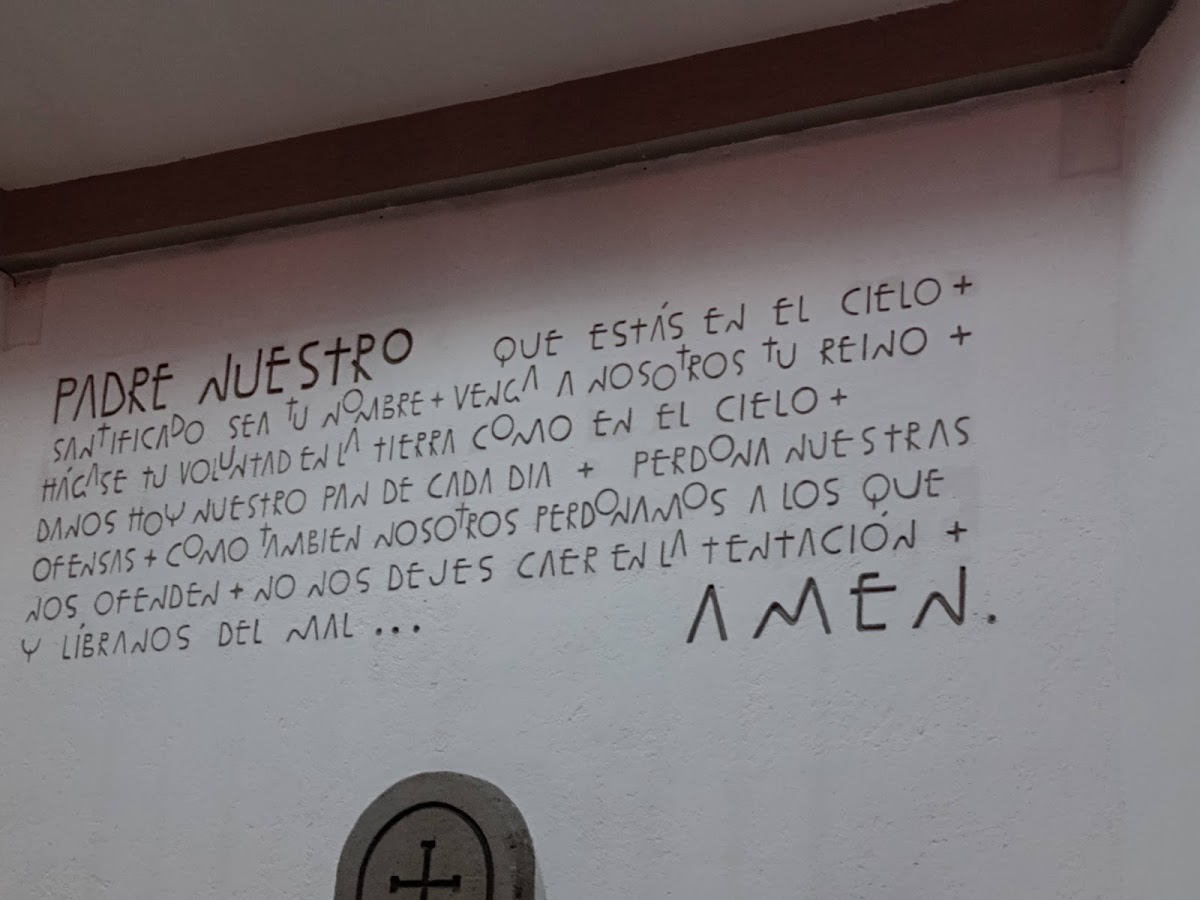 PADRE NUESTRO QUE ESTÁS EN EL CIELO +
SANTIFICADO SEA TU NOMBRE + VENGA A NOSOTROS TU REINO +
HÁGASE TU VOLUNTAD EN LA TIERRA COMO EN EL CIELO +
DANOS HOY NUESTRO PAN DE CADA DIA + PERDONA NUESTRAS
OFENSAS + COMO TAMBIEN NOSOTROS PERDONAMOS A LOS QUE
NOS OFENDEN + NO NOS DEJES CAER EN LA TENTACIÓN +
Y LÍBRANOS DEL MAL ... AMEN.